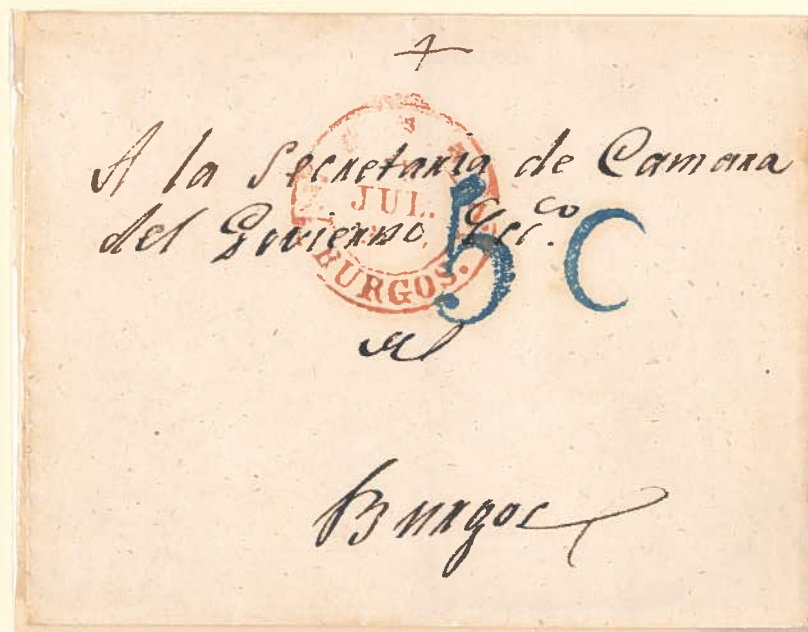 A la Secretaria de Camara
del Govierno Ecc.co
JUL.
BURGOS.
5 C
Burgos